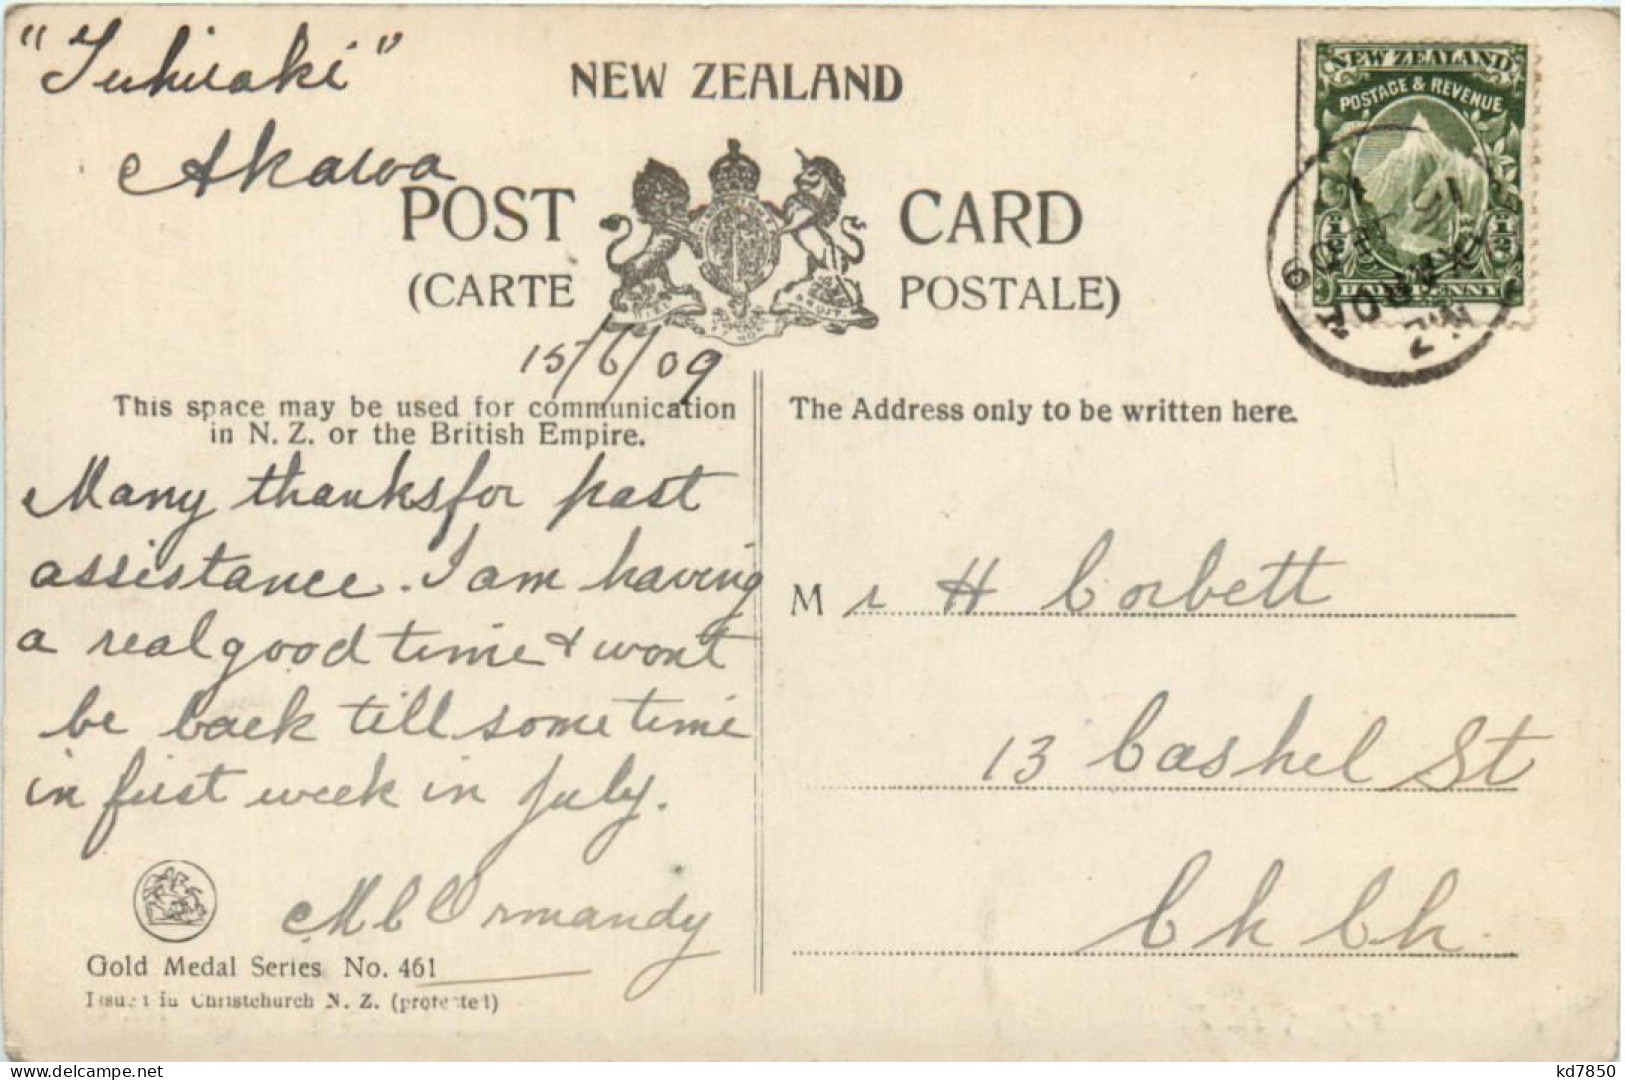 "Tuhiraki"
Akaroa
NEW ZEALAND
POST CARD
(CARTE POSTALE)
NEW ZEALAND
POSTAGE & REVENUE
HALF PENNY
15/6/09
This space may be used for communication
in N. Z. or the British Empire.
Many thanks for past
assistance. I am having
a real good time & wont
be back till some time
in first week in July.
M C Ormandy
Gold Medal Series No. 461
Issued in Christchurch N. Z. (protected)
The Address only to be written here.
Mr H Corbett
13 Cashel St
Ch Ch.
www.delcampe.net
kd7850